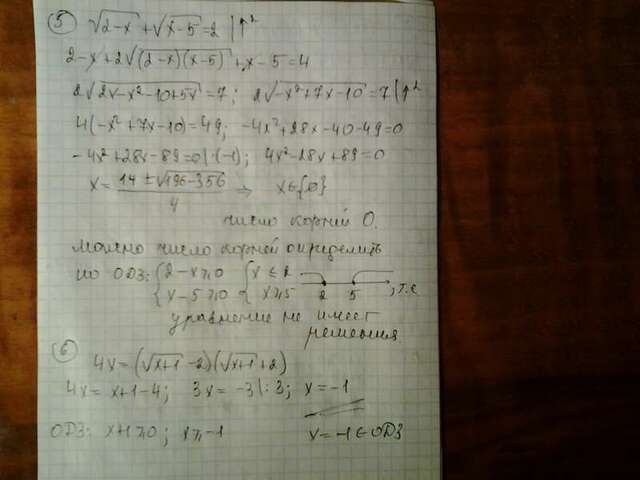 ⑤ √2-x + √x-5 = 2 |↑²
2-x+2√(2-x)(x-5) + x-5=4
2√2x-x²-10+5x = 7; 2√-x²+7x-10 = 7 |↑²
4(-x²+7x-10)=49; -4x²+28x-40-49=0
-4x²+28x-89=0 |·(-1); 4x²-28x+89=0
x = (14 ± √196-356)/4 ⇒ x∈{0}
число корней 0.
можно число корней определить
по ОДЗ: {2-x≥0 {x≤2
{x-5≥0 {x≥5 2 5 , т.е
уравнение не имеет
решения
⑥ 4x=(√x+1 -2)(√x+1 +2)
4x= x+1-4; 3x= -3 |:3; x=-1
ОДЗ: x+1≥0; x≥-1 x=-1∈ОДЗ